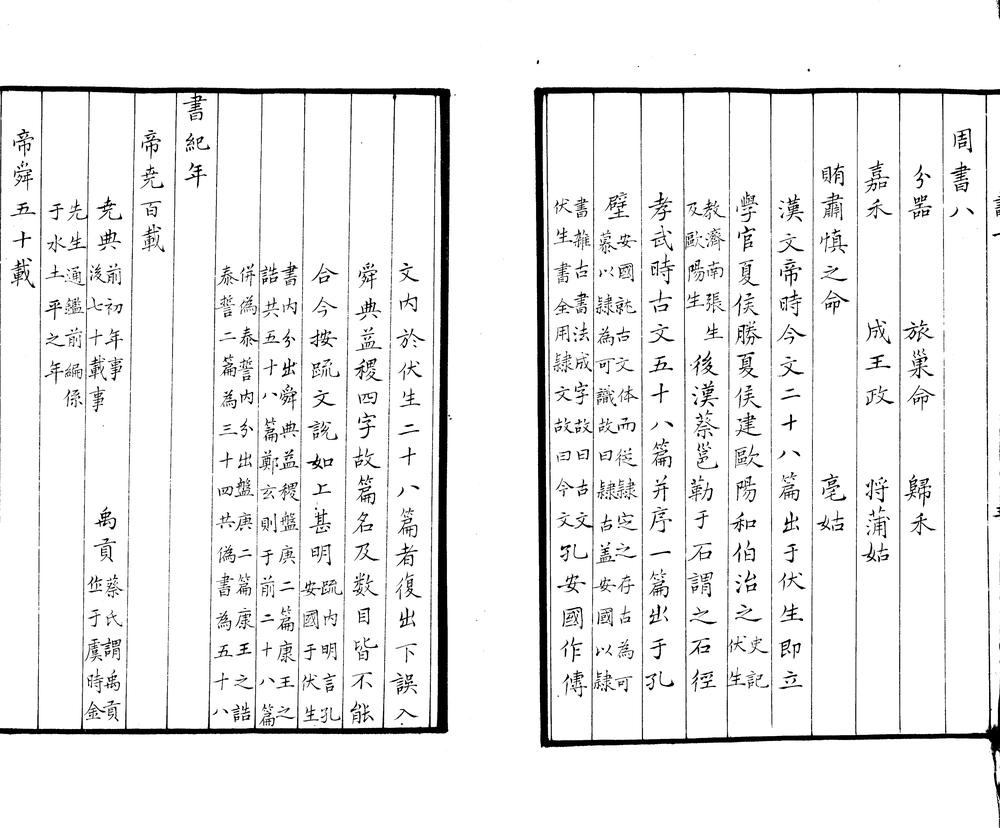 周書八
分器　旅巢命　歸禾
嘉禾　成王政　將蒲姑
賄肅慎之命　亳姑
漢文帝時今文二十八篇出于伏生即立
學官夏侯勝夏侯建歐陽和伯治之史記
伏生
教濟南張生
及歐陽生
後漢蔡邕勒于石謂之石徑
孝武時古文五十八篇并序一篇出于孔
壁安國就古文体而從隸定之存古為可
慕以隸為可識故曰隸古盖安國以隸
書雜古書法成字故曰古文
伏生書全用隸文故曰今文孔安國作傳
文內於伏生二十八篇者復出下誤入
舜典益稷四字故篇名及数目皆不能
合今按疏文說如上甚明疏內明言孔
安國于伏生
書內分出舜典益稷盤庚二篇康王之
誥共五十八篇鄭玄則于前二十八篇
併偽泰誓內分出盤庚二篇康王之誥
泰誓二篇為三十四共偽書為五十八
書紀年
帝尭百載
尭典前初年事
後七十載事
禹貢蔡氏謂禹貢
作于虞時金
先生通鑑前編係
于水土平之年
帝舜五十載